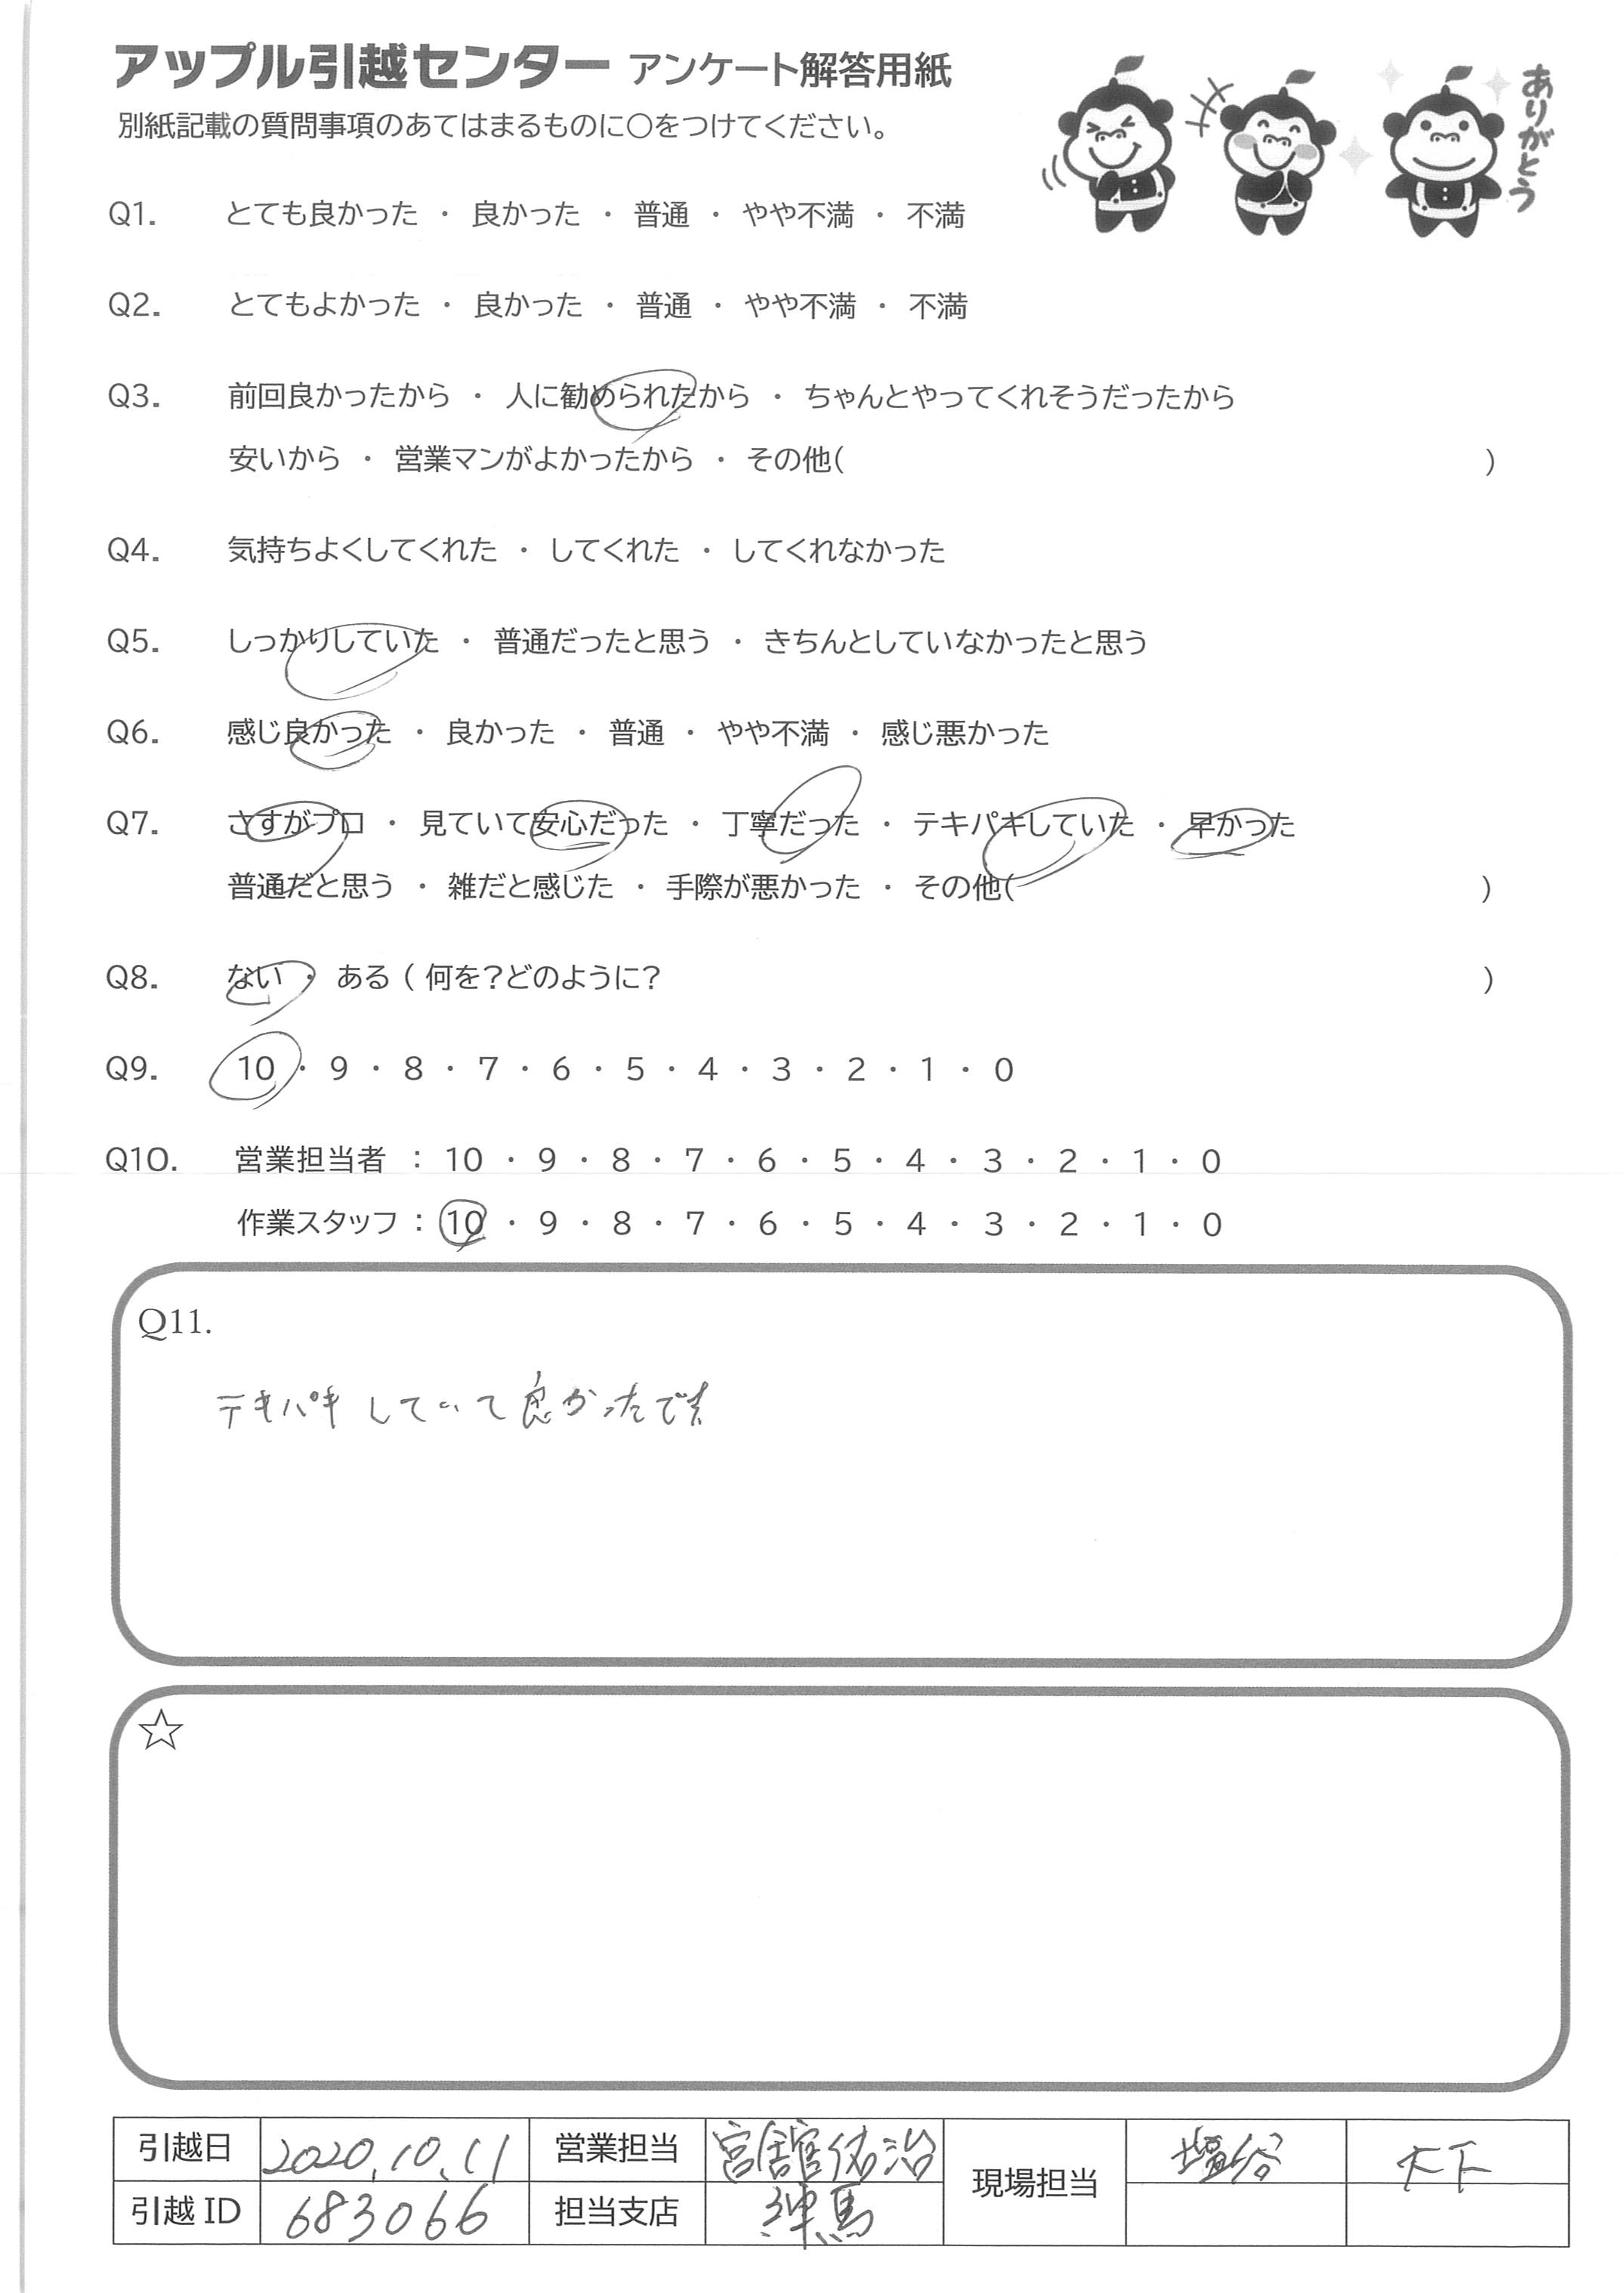 アップル引越センター アンケート解答用紙
別紙記載の質問事項のあてはまるものに○をつけてください。
ありがとう
Q1. とても良かった ・ 良かった ・ 普通 ・ やや不満 ・ 不満
Q2. とてもよかった ・ 良かった ・ 普通 ・ やや不満 ・ 不満
Q3. 前回良かったから ・ 人に勧められたから ・ ちゃんとやってくれそうだったから
安いから ・ 営業マンがよかったから ・ その他( )
Q4. 気持ちよくしてくれた ・ してくれた ・ してくれなかった
Q5. しっかりしていた ・ 普通だったと思う ・ きちんとしていなかったと思う
Q6. 感じ良かった ・ 良かった ・ 普通 ・ やや不満 ・ 感じ悪かった
Q7. さすがプロ ・ 見ていて安心だった ・ 丁寧だった ・ テキパキしていた ・ 早かった
普通だと思う ・ 雑だと感じた ・ 手際が悪かった ・ その他( )
Q8. ない ・ ある ( 何を?どのように? )
Q9. 10 ・ 9 ・ 8 ・ 7 ・ 6 ・ 5 ・ 4 ・ 3 ・ 2 ・ 1 ・ 0
Q10. 営業担当者 : 10 ・ 9 ・ 8 ・ 7 ・ 6 ・ 5 ・ 4 ・ 3 ・ 2 ・ 1 ・ 0
作業スタッフ : 10 ・ 9 ・ 8 ・ 7 ・ 6 ・ 5 ・ 4 ・ 3 ・ 2 ・ 1 ・ 0
Q11.
テキパキしていて良かったです
☆
引越日 2020.10.11 営業担当 宮舘佑治 現場担当 塩谷 大下
引越 ID 683066 担当支店 練馬